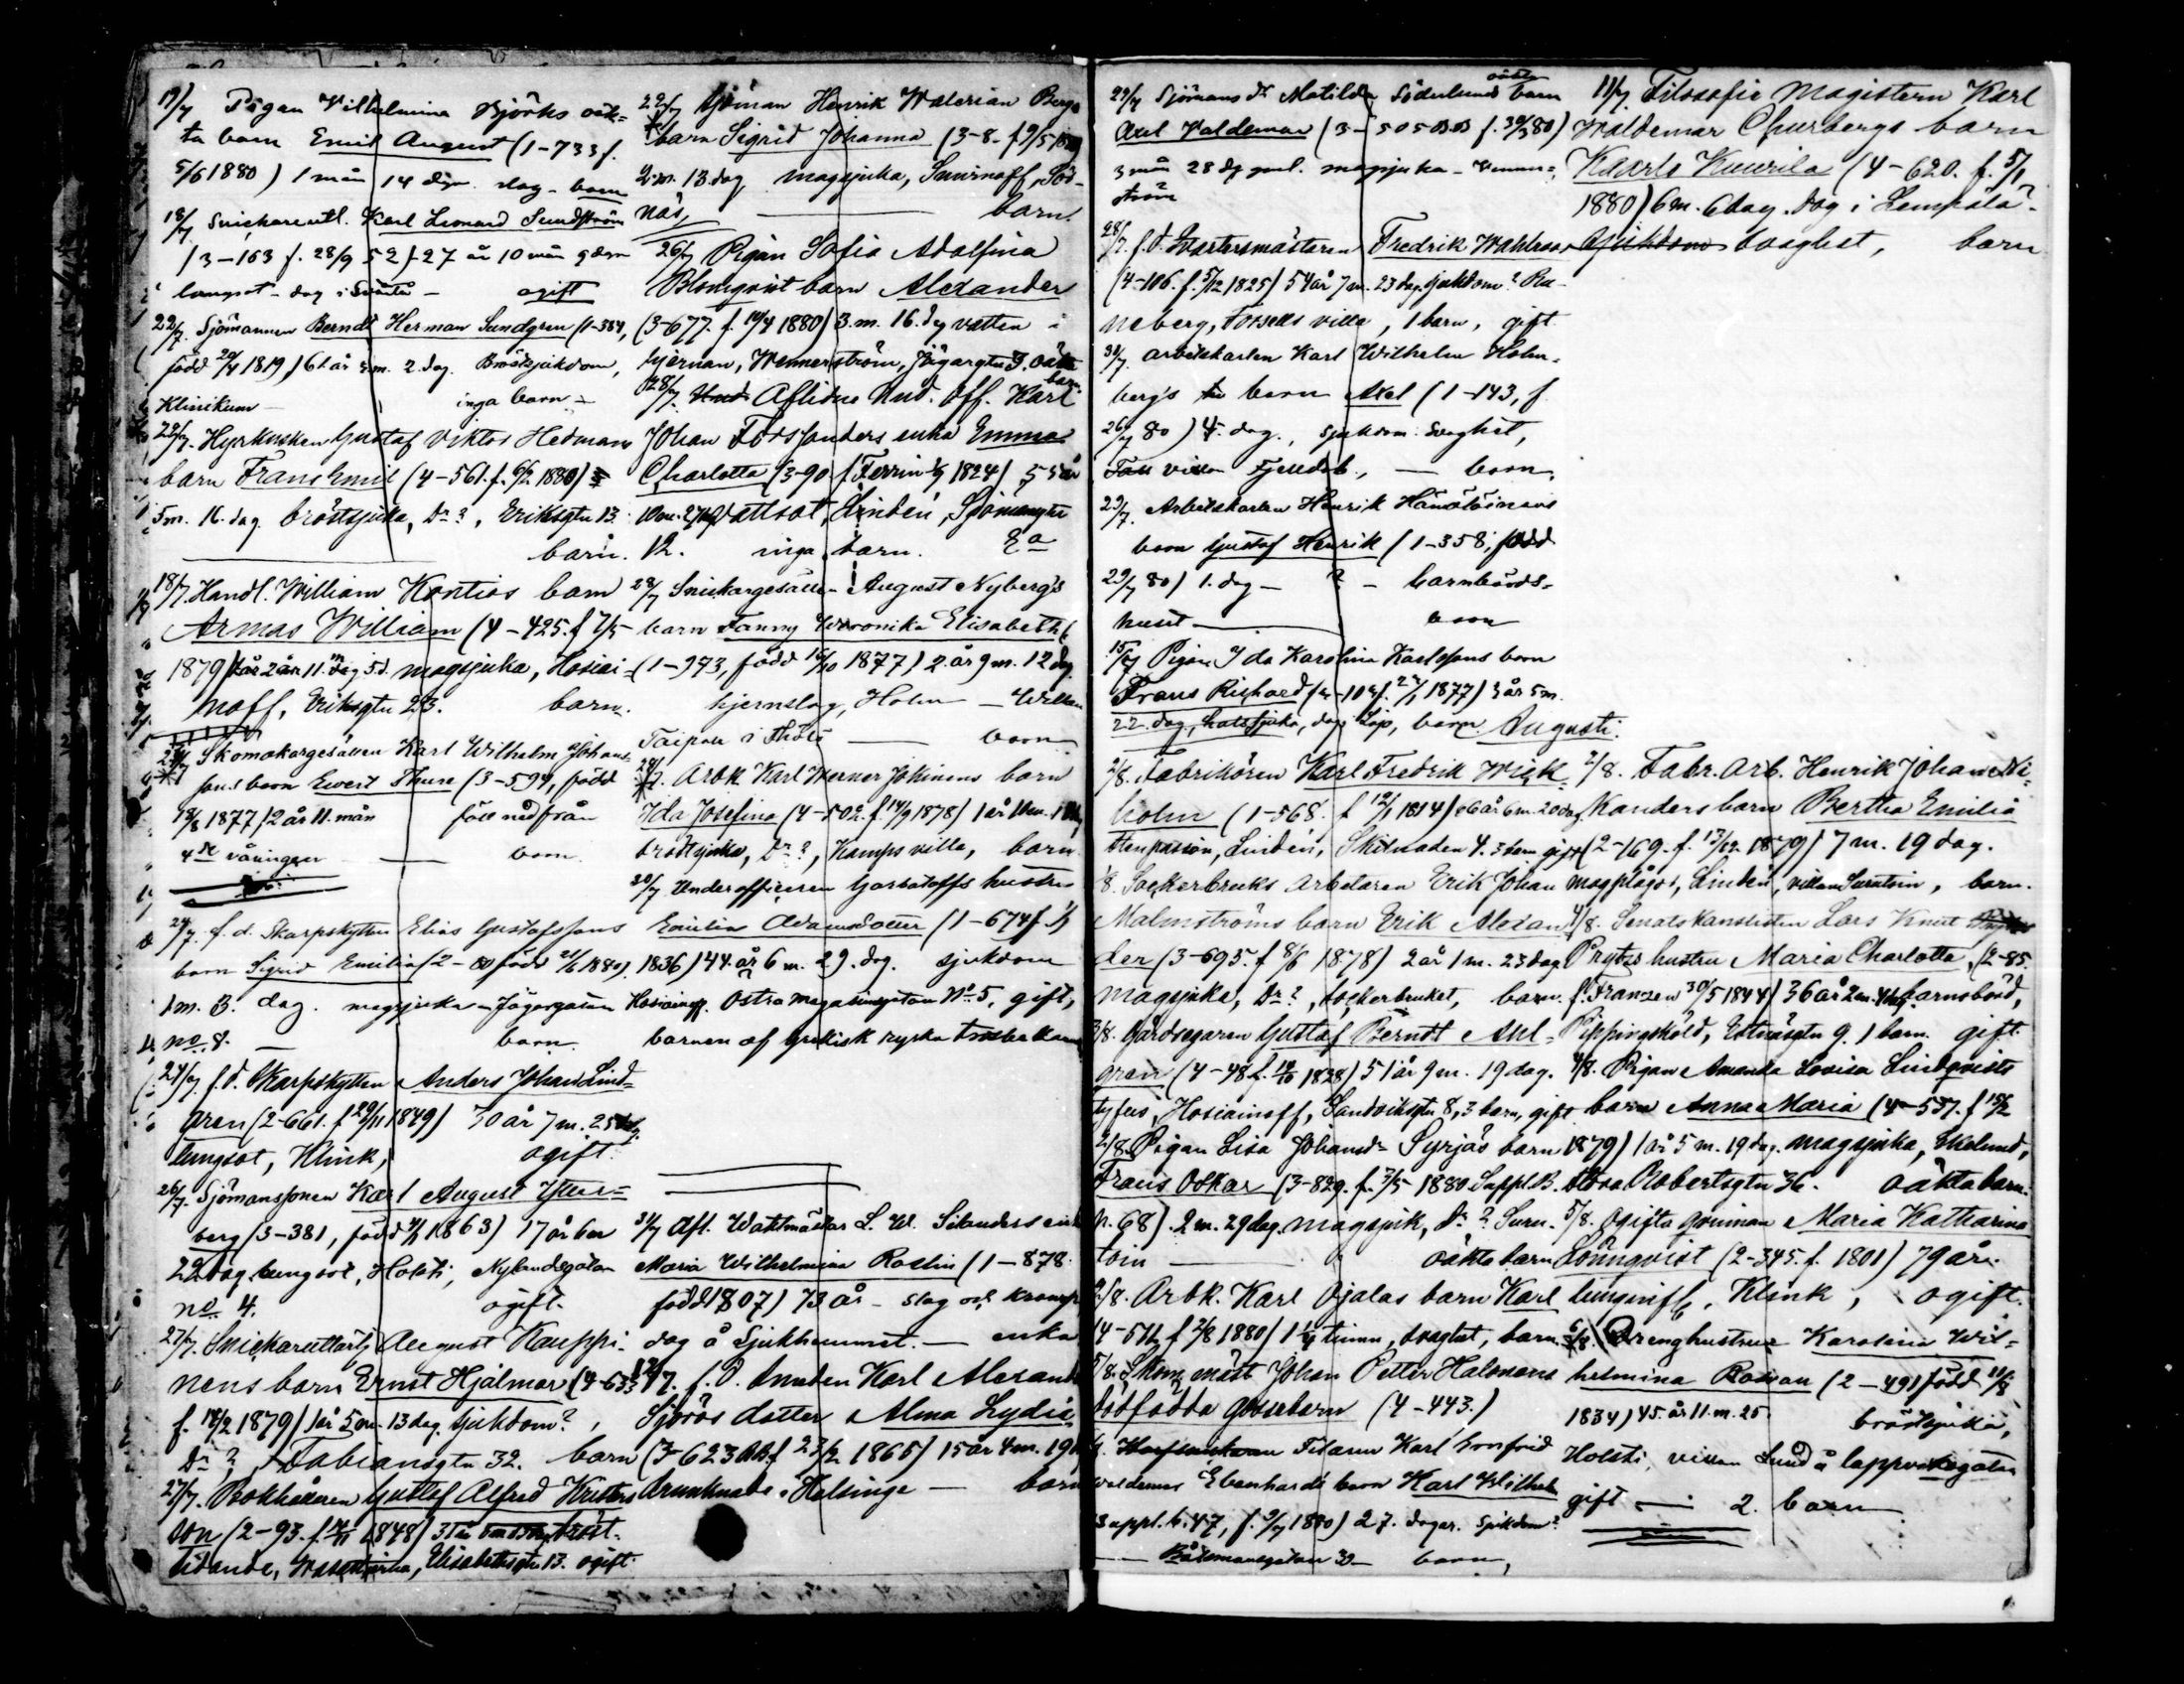 19/7 Pigan Vilhelmina Björks oäk=
ta barn Emil August (1-733 f.
5/6 1880) 1 mån 14 dgr. slag - barn
18/7 Snickareutl. Karl Leonard Sundström
(3-163 f. 28/9 52) 27 år 10 mån
lungsot - dog i - ogift
22/7 Sjömannen Berndt Herman Sundgren (1-384,
född 20/4 1819) 61 år 3 m. 2 dag. Bröstsjukdom,
Klinikum - inga barn -
22/7. Hyrkusken Gustaf Viktor Hedmans
barn Frans Emil (4-561. f. 6/2 1880)
5 m. 16. dag bröstsjuka, Dr ?, Eriksgtn 13.
barn.
18/7. Handl. William Kontios barn
Armas William (4-425. f 7/5
1879) 11. 5 d. magsjuka, Hosiai=
noff, Eriksgtn 23. barn.
Skomakargesällen Karl Wilhelm Johans
sons barn Ewert Thure (3-594, född
18/8 1877) 2 år 11. mån föll ned från
4de våningen - barn
24/7. f. d. Skarpskytten Elias Gustafssons
barn Sigrid Emilia (2- född 21/6 1880).
1 m. 3. dag. magsjuka - Jägargatan
no 8. - barn.
24/7 f. d. Skarpskytten Anders Johan Lind=
gren (2-661. f 29/11 1849) 30 år 7 m. 25 dag.
lungsot, Klink, ogift.
26/7. Sjömanssonen Karl August Ytter=
berg (3-381, född 4/1 1863) 17 år 6 m
22 dag lungsot, Holsti, Nylandsgatan
no 4. ogift.
27/7. Snickareutlärlj August Kauppi=
nens barn Ernst Hjalmar (4-633
f. 14/2 1879) 1 år 5 m. 13 dag. Sjukdom?,
Dr ?, Fabiansgtn 32. barn
27/7. Bokhållaren Gustaf Alfred Kristers
son (2-93. f. 1848) 31 år bröst-
lidande, Elisabethsgtn 13. ogift.
22/7 Sjöman Henrik Walerian Bergs
barn Sigrid Johanna (3-8. f 9/5
2 m. 13 dag magsjuka, Smirnoff, Söd-
näs, - barn.
26/7 Pigan Sofia Adolfina
Blomqvist barn Alexander
(3-677. f. 10/4 1880) 3. m. 16. dag vatten i
hjernan, Wennerström, Jägargtn 3. oäkta
barn.
28/7. Aflidne Und. Off. Karl
Johan Forssanders enka Emma
Charlotte (3-90 f. Ferrin 1824) 55 år
10 m. vattsot, Lindén, Sjömansgtn
12. inga barn.
28/7 Snickargesällen August Nybergs
barn Fanny Weronika Elisabeth
(1-973, född 16/10 1877) 2. år 9 m. 12 dag.
hjernslag, Holm - Willan
Taipale i Thölö - barn
28/7. Arbk Karl Werner Jokinens barn
Ida Josefina (4-502. f. 14/9 1878) 1 år 10 m.
bröstsjuka, Dr ?, Kamps villa, barn.
30/7 Underofficeren Gorbatoffs hustru
Emilia Adamsdotter (1-674 f.
1836) 44. år 6 m. 29. dag. sjukdom
Hosiainoff. Östra magasinsgatan No 5. gift,
barnen af grekisk ryska
31/7 Afl. Waktmästar L. W. Selanders enka
Maria Wilhelmina Roslin (1-878.
född 1807) 73 år - slag och kramp
dog å Sjukhemmet. - enka
17/7. f. d. Amuden Karl Alexander
Sjöros dotter Alma Lydia
(3-623 f 23/2 1865) 15 år 4 m. 19
Helsinge - barn
29/7 Sjömans dr Matilda Söderlunds oäkta barn
Axel Waldemar (3-505 f. 30/3 80)
3 mån 28 dg gml. magsjuka - Wenner=
ström
28/7. f. d. Kvartersmästaren Fredrik Wahlroos
(4-106. f. 5/12 1825) 54 år 7 m. 23 dag. Sjukdom? Ra-
neberg, Forsells villa, 1 barn, gift.
30/7. arbetskarlen Karl Wilhelm Holm-
berg's barn Axel (1-143, f.
26/7 80) 4. dag., Sjukdom: Svaghet,
villan Fjelldal., - barn.
29/7. Arbetskarlen Henrik Hämäläinens
barn Gustaf Henrik (1-358, född
29/7 80) 1. dag - ? - barnbörds-
huset - barn
15/7 Pigan Ida Karolina Karlssons barn
Frans Richard f. 1877) 3 år 5 m.
22. dag, halssjuka, barn. Augusti.
2/8. Fabrikören Karl Fredrik Wick
holm (1-568. f 12/1 1814) 66 år 6 m. 20 dag
Lindén, Skilnaden 4. 3 barn gift
Sockerbruks arbetaren Erik Johan
Malmströms barn Erik Alexan
der (3-695. f 8/6 1878) 2 år 1 m. 23 dag
magsjuka, Dr ?, Sockerbruket, barn.
3/8. Gårdsegaren Gustaf Berndt Ahl-
gren (4-48 f. 1828) 51 år 9 m. 19 dag.
tyfus, Hosiainoff, Sandviksgtn 8, 3 barn, gift
2/8. Pigan Lisa Johansdr Syrjäs barn
Frans Oskar (3-829. f. 3/5 1880 Suppl. B.
p. 68) 2 m. 29 dag. magsjuk, Dr ? Surn-
toin - oäkta barn
2/8. Arbk. Karl Ojalas barn Karl
(4-511 f 2/8 1880) 1 1/4 timm, svaghet, barn
5/8. Skom. mäst Johan Petter Halonens
dödfödda gossebarn (4-443.)
Filaren Karl Gonfrid
Waldemar Ebenhards barn Karl Wilhelm
Suppl. b. 47, f. 9/7 1880) 27. dagar. Sjukdom?
- Båtsmansgatan 39 - barn,
11/7. Filosofie Magistern Karl
Waldemar Churbergs barn
Kaarlo Kunrila (4-620. f. 5/1
1880) 6 m. 6 dag. dog i Lempälä.
svaghet, barn
2/8. Fabr. Arb. Henrik Johan Ni-
kanders barn Bertha Emilia
(2-169. f. 13/12. 1879) 7 m. 19 dag.
magplågor, Lindén, villan Surutoin, barn.
4/8. Senatskanslisten Lars Knut
Prytz's hustru Maria Charlotta, (2-85.
f. Franzen 30/5 1844) 36 år 2 m. barnsbörd,
Pippingsköld, Estnäsgtn 9. 1 barn. gift.
4/8. Pigan Amanda Lovisa Lindqvists
barn Anna Maria (4-537. f 15/2
1879) 1 år 5 m. 19 dag. magsjuka, Ekelund,
Stora Robertsgtn 36. oäkta barn.
5/8. Ogifta qvinnan Maria Katharina
Lönnqvist (2-345. f. 1801) 79 år.
lunginfl, Klink, ogift.
6/8. Drenghustrun Karolina Wil=
helmina Roivan (2-491 född 11/8
1834) 45. år 11. m. 25. bröstsjuka,
Holsti, villan Lund å lappviksgatan
gift - 2. barn